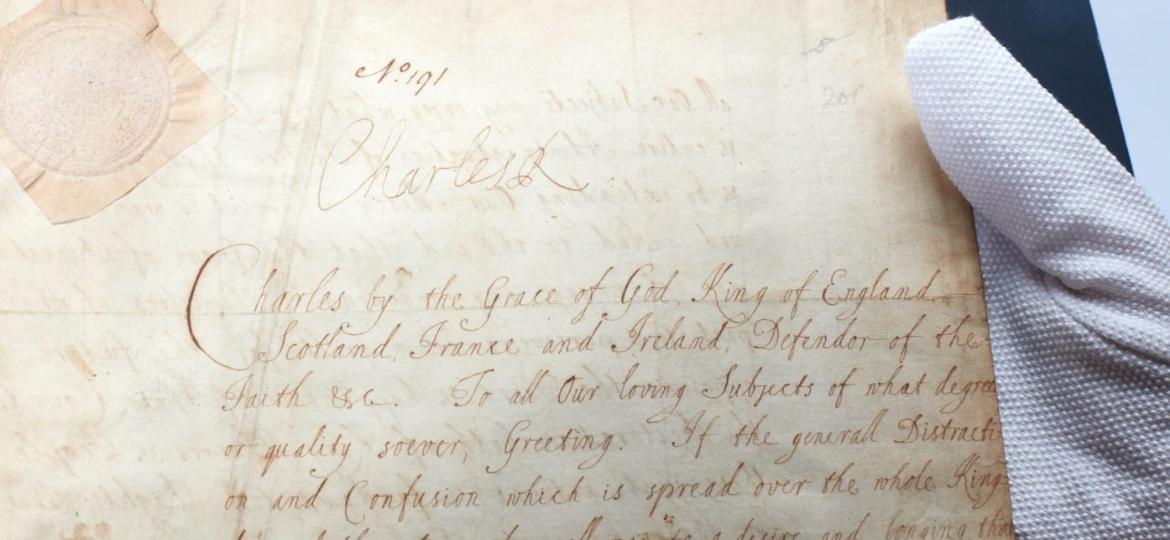 No 191
201
Charles R
Charles by the Grace of God, King of England,
Scotland, France and Ireland, Defendor of the
Faith &c. To all Our loving Subjects of what degree
or quality soever, Greeting. If the generall Distracti-
on and Confusion which is spread over the whole King-
to a desire and longing